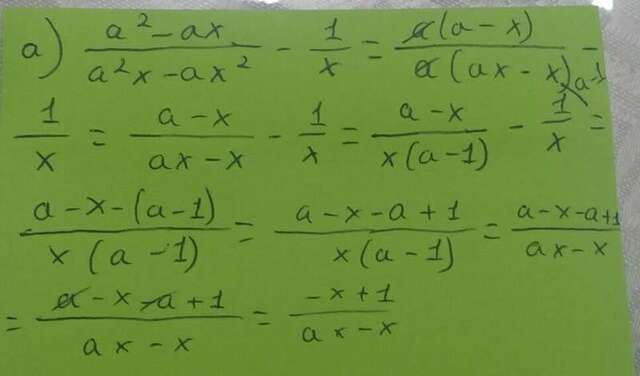 a) (a² - ax)/(a²x - ax²) - 1/x = a(a - x)/a(ax - x) -
1/x = (a - x)/(ax - x) - 1/x = (a - x)/x(a - 1) - 1/x = a-1
(a - x - (a - 1))/x(a - 1) = (a - x - a + 1)/x(a - 1) = (a - x - a + 1)/(ax - x)
= (a - x - a + 1)/(ax - x) = (-x + 1)/(ax - x)